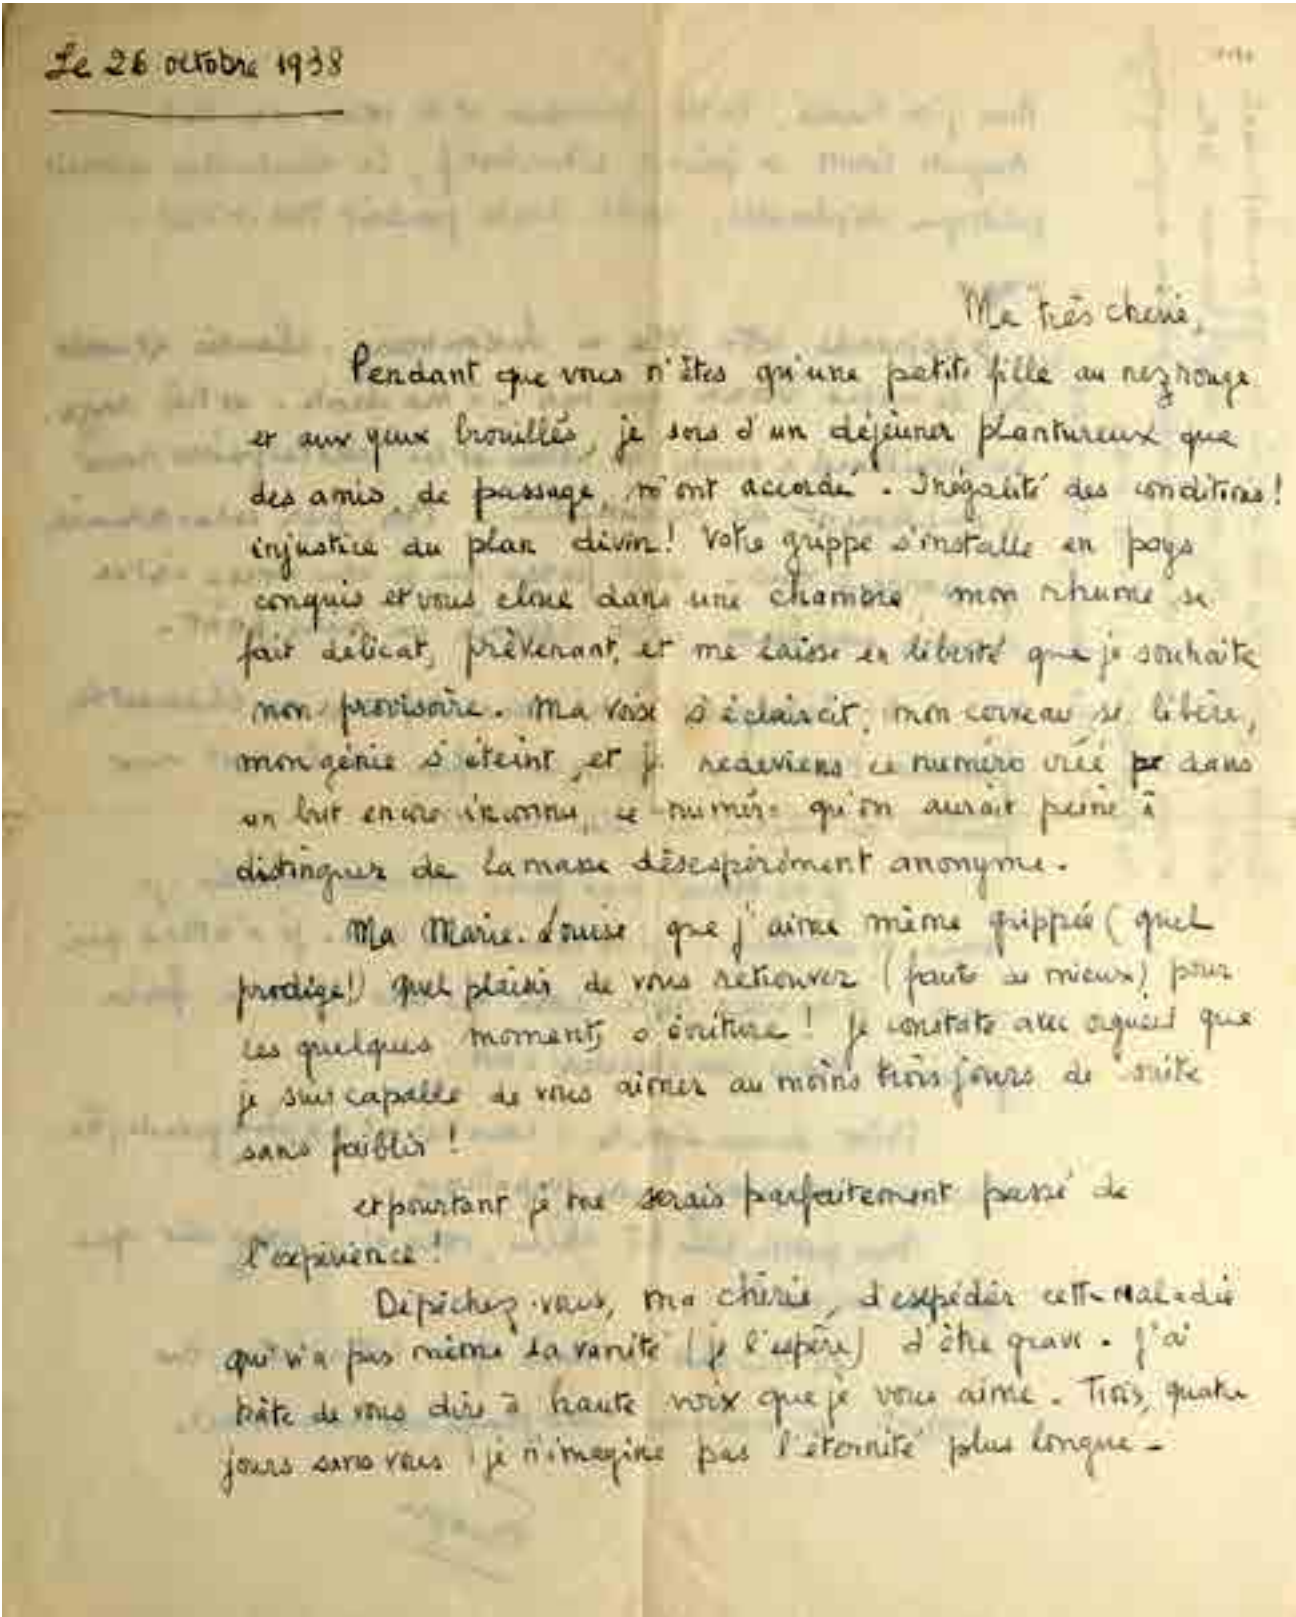 Le 26 octobre 1938
Ma très chérie,
Pendant que vous n'êtes qu'une petite fille au nez rouge
et aux yeux brouillés, je sors d'un déjeuner plantureux que
des amis de passage m'ont accordé. Inégalité des conditions!
injustice du plan divin! Votre grippe s'installe en pays
conquis et vous cloue dans une chambre, mon rhume se
fait délicat, prévenant, et me laisse en liberté que je souhaite
non provisoire. Ma voix s'éclaircit, mon cerveau se libère,
mon génie s'éteint, et je redeviens ce numéro créé dans
un but encore inconnu, ce numéro qu'on aurait peine à
distinguer de la masse désespérément anonyme.
Ma Marie-Louise que j'aime même grippée (quel
prodige!) quel plaisir de vous retrouver (faute de mieux) pour
ces quelques moments d'écriture! je constate avec orgueil que
je suis capable de vous aimer au moins trois jours de suite
sans faiblir!
et pourtant je me serais parfaitement passé de
l'expérience!
Dépêchez-vous, ma chérie, d'expédier cette maladie
qui n'a pas même la vanité (je l'espère) d'être grave. J'ai
hâte de vous dire à haute voix que je vous aime. Trois, quatre
jours sans vous : je n'imagine pas l'éternité plus longue -